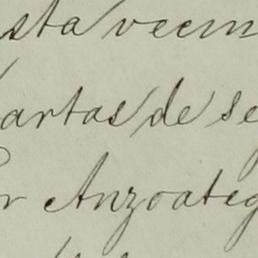 sta veem
artas de se
r Anzoateg